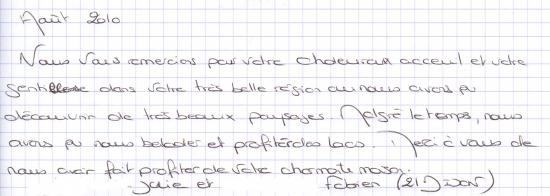 Août 2010
Nous Vous remercions pour votre chaleureux acceuil et votre
gentillesse dans votre très belle région ou nous avons pu
découvrir de très beaux paysages. Malgré le temps, nous
avons pu nous balader et profiter des lacs. Merci à vous de
nous avoir fait profiter de votre charmante maison.
et Fabien (21)